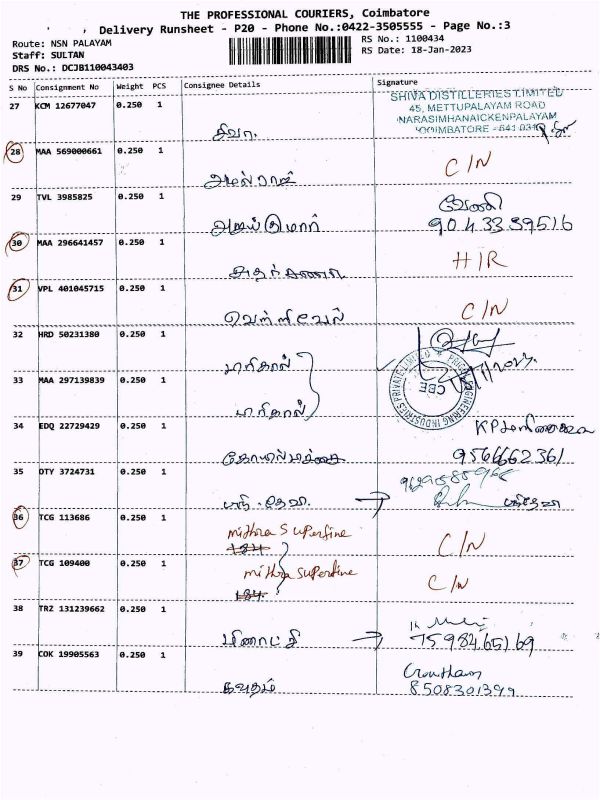 THE PROFESSIONAL COURIERS, Coimbatore
Delivery Runsheet - P20 - Phone No.:0422-3505555 - Page No.:3
Route: NSN PALAYAM
RS No.: 1100434
Staff: SULTAN
RS Date: 18-Jan-2023
DRS No.: DCJB110043403
S No Consignment No Weight PCS Consignee Details Signature
27 KCM 12677047 0.250 1
SHIVA DISTILLERIES LIMITED
45, METTUPALAYAM ROAD
NARASIMHANAICKENPALAYAM
COIMBATORE - 641 031
சிவா.
28 MAA 569000661 0.250 1 C/N
அமல்ராஜ்
29 TVL 3985825 0.250 1 வேணி
அஜய்குமார் 9043339516
30 MAA 296641457 0.250 1 H/R
31 VPL 401045715 0.250 1 C/N
வெற்றிவேல்
32 HRD 50231380 0.250 1
33 MAA 297139839 0.250 1
34 EDQ 22729429 0.250 1
9566662361
35 DTY 3724731 0.250 1
36 TCG 113686 0.250 1 mithra Superfine C/N
37 TCG 109400 0.250 1 mithra Superfine C/N
38 TRZ 131239662 0.250 1
மீனாட்சி → 7598465169
39 COK 19905563 0.250 1 Gowtham
கவுதம் 8508301399